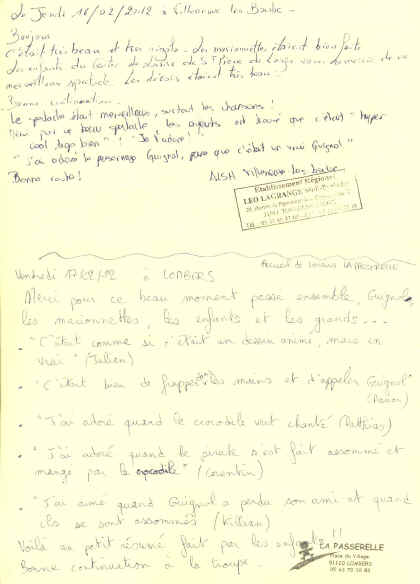 Le Jeudi 16/02/2012 à Villeneuve les Bouloc
Bonjour
C'était très beau et très rigolo. Les marionnettes étaient bien faites
Les enfants du Centre de Loisirs de St Pierre de Lages vous remercie de ce
merveilleux spectacle. Les décors étaient très beau.
Bonne continuation.
Le spectacle était merveilleux, surtout les chansons !
Merci pour ce beau spectacle. les enfants ont trouvé que c'était "hyper
cool trop bien" ! "Je l'adore" !
"J'ai adoré le personnage Guignol, parce que c'était un vrai Guignol"
Bonne route !
ALSH Villeneuve les Bouloc
Etablissement Régional
LEO LAGRANGE
Vendredi 17/02/12 à LOMBERS
Accueil de Loisirs LA PASSERELLE
Merci pour ce beau moment passé ensemble, Guignol,
les marionnettes, les enfants et les grands...
- "C'était comme si c'était un dessin animé, mais en
vrai" (Julien)
- "C'était bien de frapper dans les mains et d'appeler Guignol"
- "J'ai adoré quand le crocodile veut chanté (Matthias)
- "J'ai adoré quand le pirate s'est fait assommé et
mangé par le crocodile" (Corentin)
- "J'ai aimé quand Guignol a perdu son ami et quand
ils se sont assommés (Killian)
Voilà un petit résumé fait par les enfants !!
Bonne continuation à la troupe.
LA PASSERELLE
Place du Village
81120 LOMBERS